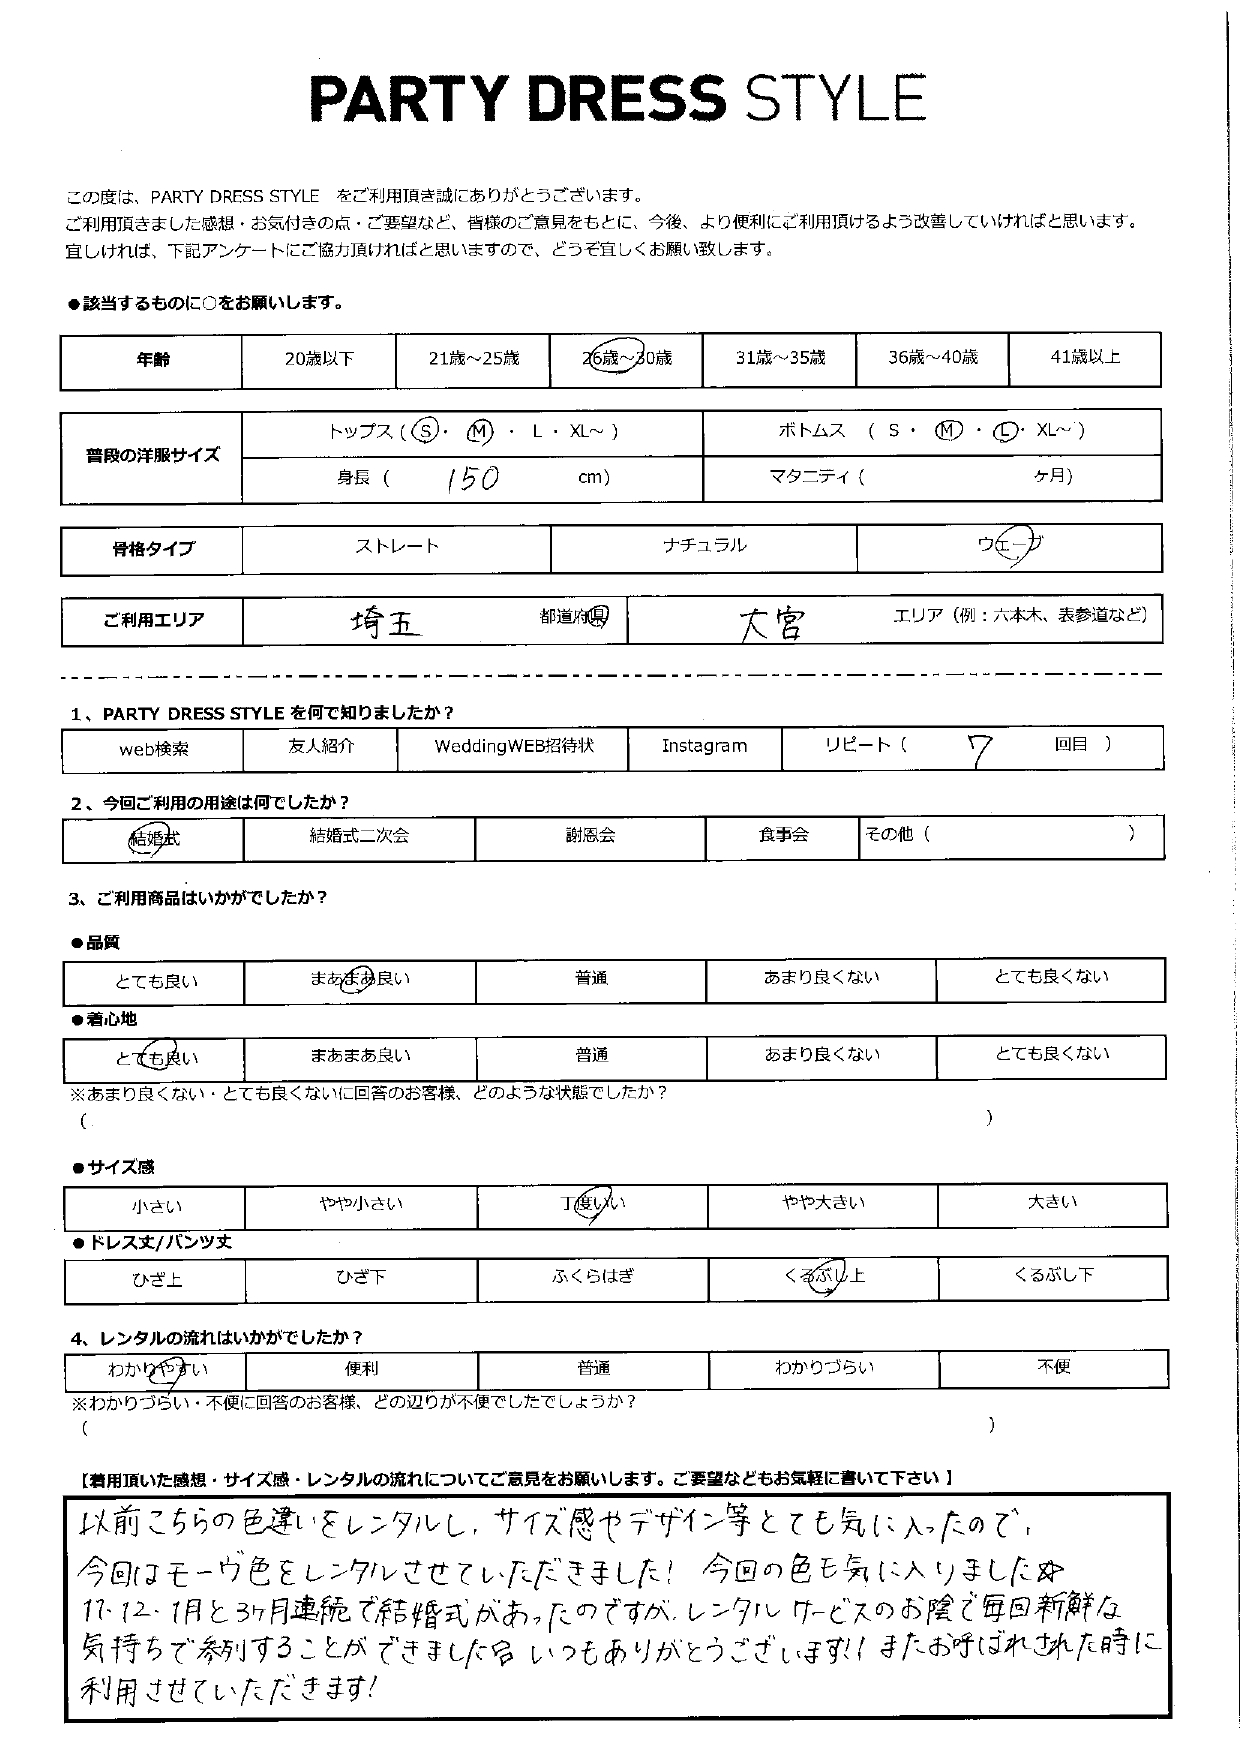 PARTY DRESS STYLE
この度は、PARTY DRESS STYLE をご利用頂き誠にありがとうございます。
ご利用頂きました感想・お気付きの点・ご要望など、皆様のご意見をもとに、今後、より便利にご利用頂けるよう改善していければと思います。
宜しければ、下記アンケートにご協力頂ければと思いますので、どうぞ宜しくお願い致します。
●該当するものに○をお願いします。
年齢 20歳以下 21歳～25歳 26歳～30歳 31歳～35歳 36歳～40歳 41歳以上
普段の洋服サイズ トップス ( S ・ M ・ L ・ XL～ ) ボトムス ( S ・ M ・ L ・ XL～ )
身長 ( 150 cm) マタニティ ( ヶ月)
骨格タイプ ストレート ナチュラル ウェーブ
ご利用エリア 埼玉 都道府県 大宮 エリア (例：六本木、表参道など)
1、PARTY DRESS STYLE を何で知りましたか？
web検索 友人紹介 WeddingWEB招待状 Instagram リピート ( 7 回目 )
2、今回ご利用の用途は何でしたか？
結婚式 結婚式二次会 謝恩会 食事会 その他 ( )
3、ご利用商品はいかがでしたか？
●品質
とても良い まあまあ良い 普通 あまり良くない とても良くない
●着心地
とても良い まあまあ良い 普通 あまり良くない とても良くない
※あまり良くない・とても良くないに回答のお客様、どのような状態でしたか？
( )
●サイズ感
小さい やや小さい 丁度いい やや大きい 大きい
●ドレス丈/パンツ丈
ひざ上 ひざ下 ふくらはぎ くるぶし上 くるぶし下
4、レンタルの流れはいかがでしたか？
わかりやすい 便利 普通 わかりづらい 不便
※わかりづらい・不便に回答のお客様、どの辺りが不便でしたでしょうか？
( )
【着用頂いた感想・サイズ感・レンタルの流れについてご意見をお願いします。ご要望などもお気軽に書いて下さい】
以前こちらの色違いをレンタルし、サイズ感やデザイン等とても気に入ったので、
今回はモーヴ色をレンタルさせていただきました! 今回の色も気に入りました☆
11・12・1月と3ヶ月連続で結婚式があったのですが、レンタルサービスのお陰で毎回新鮮な
気持ちで参列することができました いつもありがとうございます!! またお呼ばれされた時に
利用させていただきます!